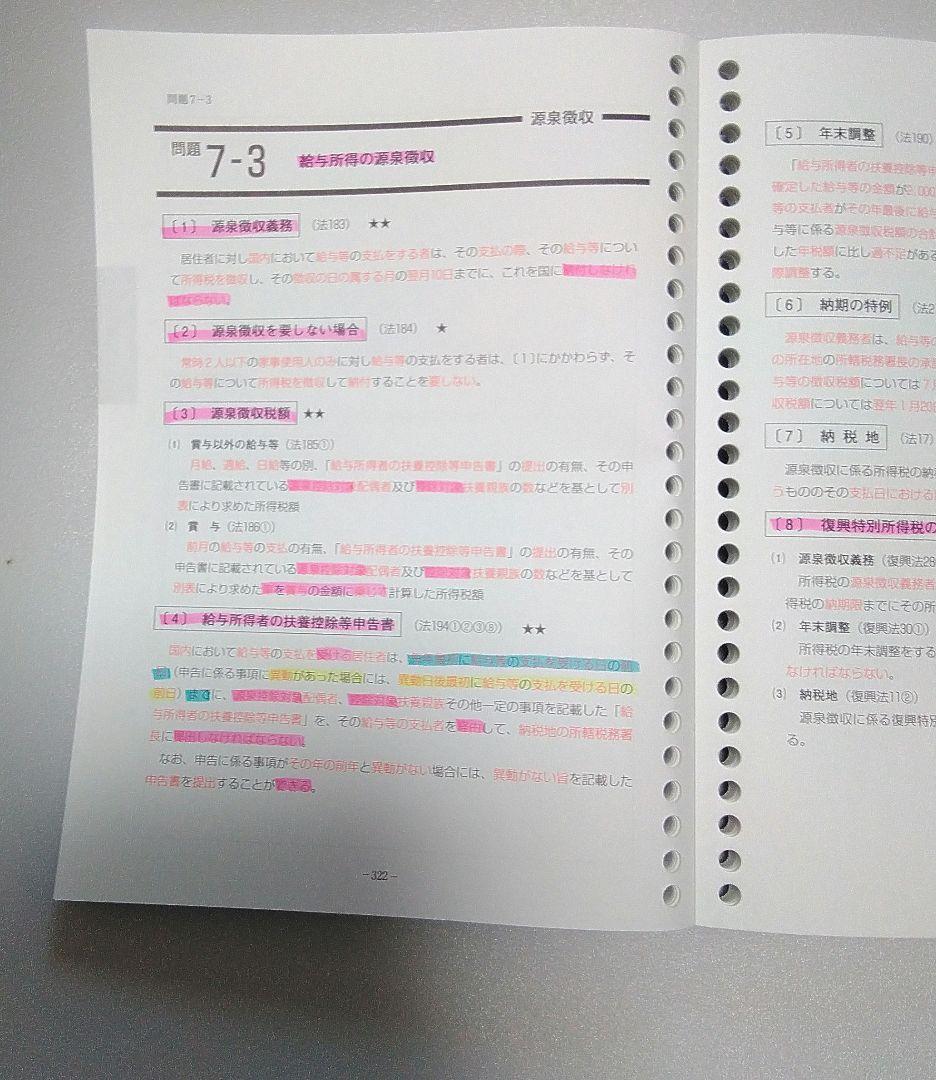 問題7-3
源泉徴収
問題 7-3 給与所得の源泉徴収
〔1〕 源泉徴収義務 (法183) ★★
居住者に対し国内において給与等の支払をする者は、その支払の際、その給与等につい
て所得税を徴収し、その徴収の日の属する月の翌月10日までに、これを国に納付しなけれ
ばならない。
〔2〕 源泉徴収を要しない場合 (法184) ★
常時2人以下の家事使用人のみに対し給与等の支払をする者は、〔1〕にかかわらず、そ
の給与等について所得税を徴収して納付することを要しない。
〔3〕 源泉徴収税額 ★★
(1) 賞与以外の給与等(法185①)
月給、週給、日給等の別、「給与所得者の扶養控除等申告書」の提出の有無、その申
告書に記載されている源泉控除対象配偶者及び控除対象扶養親族の数などを基として別
表により求めた所得税額
(2) 賞 与(法186①)
前月の給与等の支払の有無、「給与所得者の扶養控除等申告書」の提出の有無、その
申告書に記載されている源泉控除対象配偶者及び控除対象扶養親族の数などを基として
別表により求めた率を賞与の金額に乗じて計算した所得税額
〔4〕 給与所得者の扶養控除等申告書 (法194①②③⑧) ★★
国内において給与等の支払を受ける居住者は、毎年最初に給与等の支払を受ける日の前
日(申告に係る事項に異動があった場合には、異動日後最初に給与等の支払を受ける日の
前日)までに、源泉控除対象配偶者、控除対象扶養親族その他一定の事項を記載した「給
与所得者の扶養控除等申告書」を、その給与等の支払者を経由して、納税地の所轄税務署
長に提出しなければならない。
なお、申告に係る事項がその年の前年と異動がない場合には、異動がない旨を記載した
申告書を提出することができる。
-322-
〔5〕 年末調整 (法190)
「給与所得者の扶養控除等申
確定した給与等の金額が2,000
等の支払者がその年最後に給与
与等に係る源泉徴収税額の合計
した年税額に比し過不足がある
際調整する。
〔6〕 納期の特例 (法2
源泉徴収義務者は、給与等の
の所在地の所轄税務署長の承認
与等の徴収税額については7月
収税額については翌年1月20日
〔7〕 納 税 地 (法17)
源泉徴収に係る所得税の納
うもののその支払日における
〔8〕 復興特別所得税の
(1) 源泉徴収義務(復興法28
所得税の源泉徴収義務者
得税の納期限までにその所
(2) 年末調整(復興法30①)
所得税の年末調整をする
なければならない。
(3) 納税地(復興法11②)
源泉徴収に係る復興特別
る。